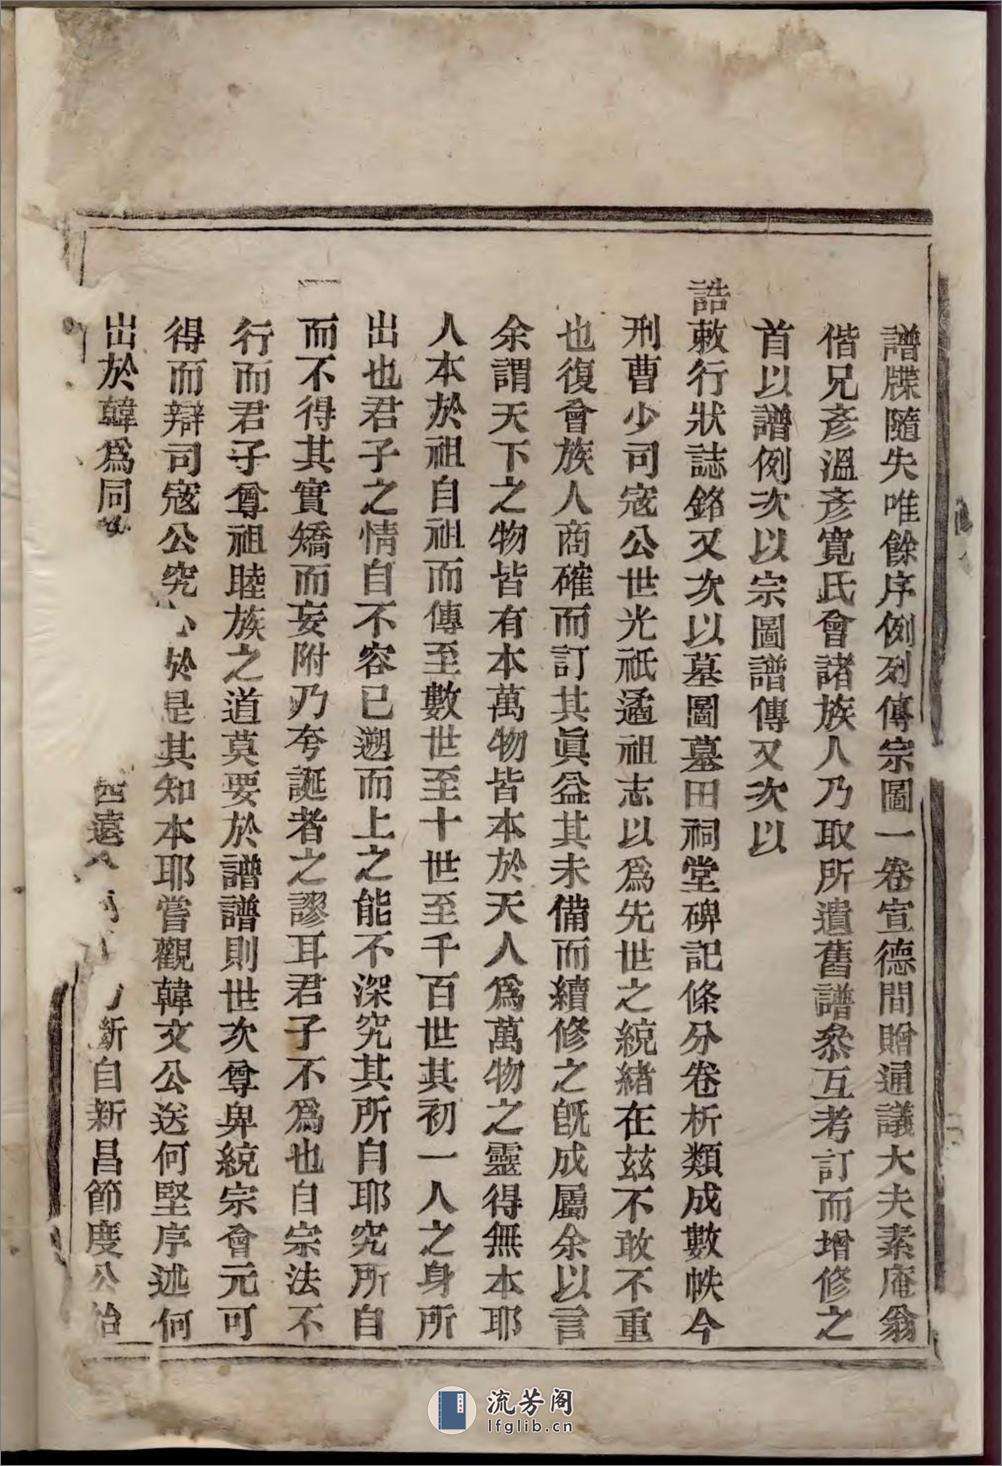 譜牒隨失唯餘序例列傳宗圖一卷宣德間贈通議大夫素庵翁
偕兄彥溫彥寬氏會諸族人乃取所遺舊譜叅互考訂而增修之
首以譜例次以宗圖譜傳又次以
誥敕行狀誌銘又次以墓圖墓田祠堂碑記條分卷析類成數帙今
刑曹少司寇公世光祇遹祖志以爲先世之統緒在茲不敢不重
也復會族人商確而訂其眞益其未備而續修之旣成屬余以言
余謂天下之物皆有本萬物皆本於天人爲萬物之靈得無本耶
人本於祖自祖而傳至數世至十世至千百世其初一人之身所
出也君子之情自不容已遡而上之能不深究其所自耶究所自
而不得其實矯而妄附乃夸誕者之謬耳君子不爲也自宗法不
行而君子尊祖睦族之道莫要於譜譜則世次尊卑統宗會元可
得而辯司寇公究於是其知本耶嘗觀韓文公送何堅序述何
出於韓爲同遠斷自新昌節度公始
流芳阁
lfglib.cn